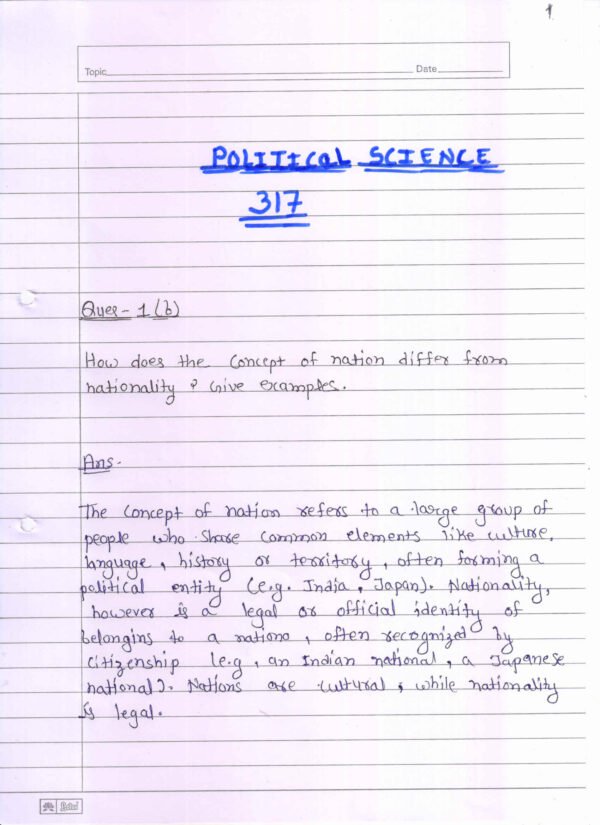 1
Topic Date
POLITICAL SCIENCE
317
Ques- 1 (b)
How does the concept of nation differ from
nationality ? Give examples.
Ans.
The concept of nation refers to a large group of
people who share common elements like culture,
language, history or territory, often forming a
political entity (e.g. India, Japan). Nationality,
however is a legal or official identity of
belongins to a nationo, often recognized by
citizenship (e.g, an Indian national, a Japanese
national). Nations are cultural, while nationality
is legal.